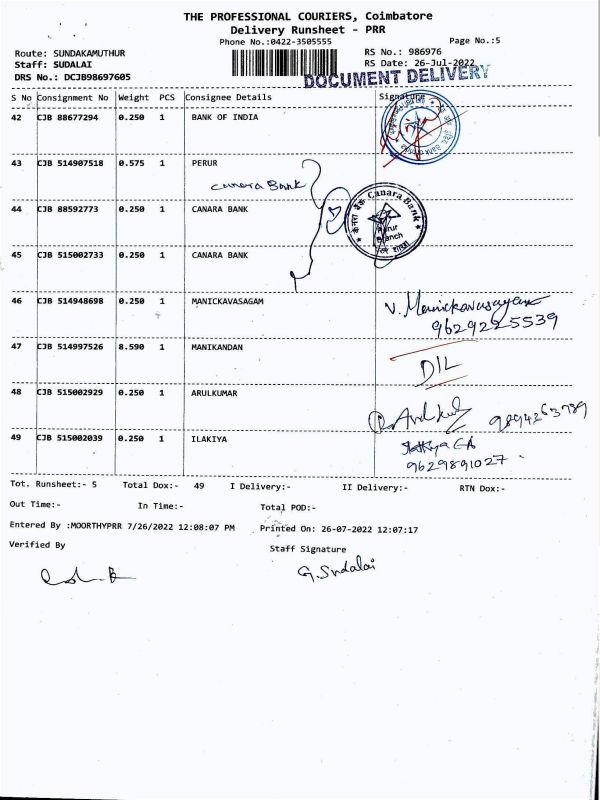 THE PROFESSIONAL COURIERS, Coimbatore
Delivery Runsheet - PRR
Phone No.:0422-3505555 Page No.:5
Route: SUNDAKAMUTHUR RS No.: 986976
Staff: SUDALAI RS Date: 26-Jul-2022
DRS No.: DCJB98697605 DOCUMENT DELIVERY
S No Consignment No Weight PCS Consignee Details Signature
42 CJB 88677294 0.250 1 BANK OF INDIA
43 CJB 514907518 0.575 1 PERUR
Canara Bank
44 CJB 88592773 0.250 1 CANARA BANK
केनरा बैंक Canara Bank
Perur
Branch
शाखा
45 CJB 515002733 0.250 1 CANARA BANK
46 CJB 514948698 0.250 1 MANICKAVASAGAM V. Manickavasagam
9629225539
47 CJB 514997526 8.590 1 MANIKANDAN D/L
48 CJB 515002929 0.250 1 ARULKUMAR Arulkul 9894263789
49 CJB 515002039 0.250 1 ILAKIYA
9629891027
Tot. Runsheet:- 5 Total Dox:- 49 I Delivery:- II Delivery:- RTN Dox:-
Out Time:- In Time:- Total POD:-
Entered By :MOORTHYPRR 7/26/2022 12:08:07 PM Printed On: 26-07-2022 12:07:17
Verified By Staff Signature
G. Sudalai